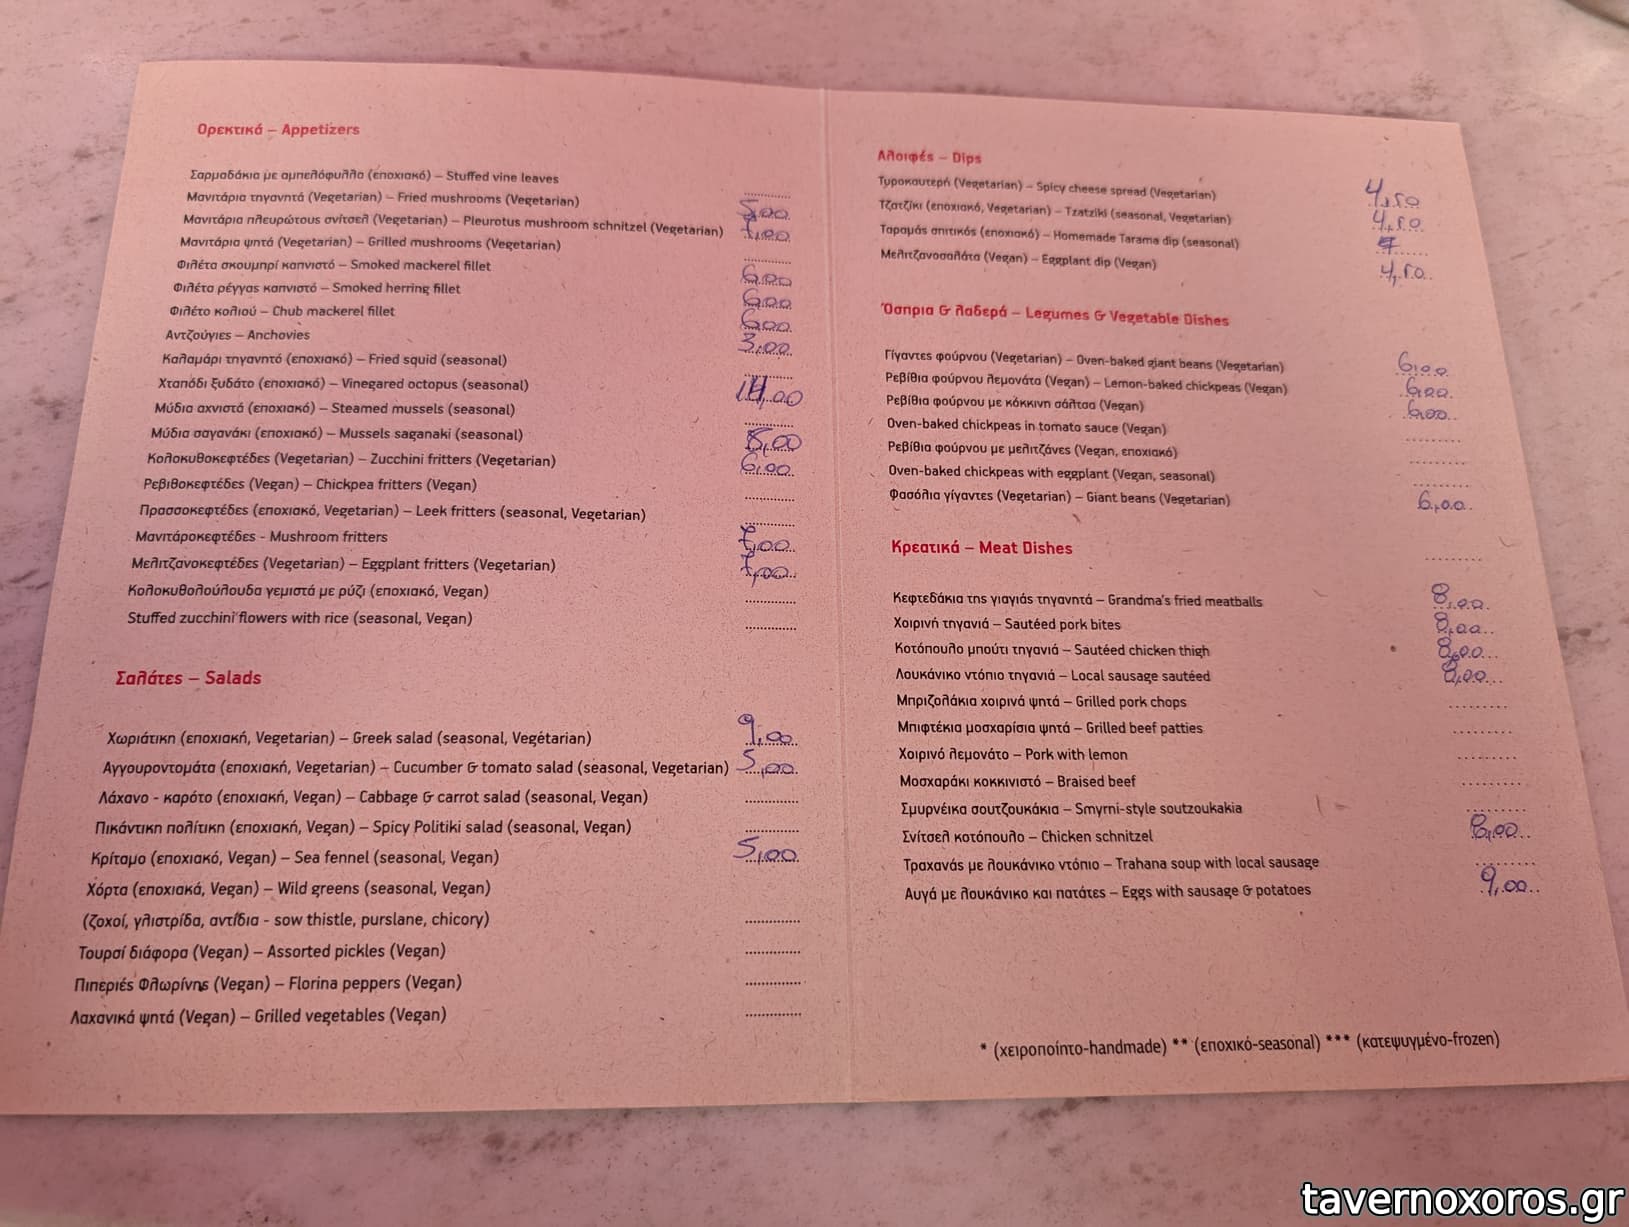 Ορεκτικά – Appetizers
Σαρμαδάκια με αμπελόφυλλα (εποχιακό) – Stuffed vine leaves
Μανιτάρια τηγανητά (Vegetarian) – Fried mushrooms (Vegetarian) 5,00
Μανιτάρια πλευρώτους σνίτσελ (Vegetarian) – Pleurotus mushroom schnitzel (Vegetarian) 7,00
Μανιτάρια ψητά (Vegetarian) – Grilled mushrooms (Vegetarian)
Φιλέτα σκουμπρί καπνιστό – Smoked mackerel fillet 6,00
Φιλέτα ρέγγας καπνιστό – Smoked herring fillet 6,00
Φιλέτο κολιού – Chub mackerel fillet 6,00
Αντζούγιες – Anchovies 3,00
Καλαμάρι τηγανητό (εποχιακό) – Fried squid (seasonal)
Χταπόδι ξυδάτο (εποχιακό) – Vinegared octopus (seasonal) 14,00
Μύδια αχνιστά (εποχιακό) – Steamed mussels (seasonal)
Μύδια σαγανάκι (εποχιακό) – Mussels saganaki (seasonal) 8,00
Κολοκυθοκεφτέδες (Vegetarian) – Zucchini fritters (Vegetarian) 6,00
Ρεβιθοκεφτέδες (Vegan) – Chickpea fritters (Vegan)
Πρασσοκεφτέδες (εποχιακό, Vegetarian) – Leek fritters (seasonal, Vegetarian)
Μανιτάροκεφτέδες - Mushroom fritters 7,00
Μελιτζανοκεφτέδες (Vegetarian) – Eggplant fritters (Vegetarian) 7,00
Κολοκυθολούλουδα γεμιστά με ρύζι (εποχιακό, Vegan)
Stuffed zucchini flowers with rice (seasonal, Vegan)
Σαλάτες – Salads
Χωριάτικη (εποχιακή, Vegetarian) – Greek salad (seasonal, Vegetarian) 9,00
Αγγουροντομάτα (εποχιακή, Vegetarian) – Cucumber & tomato salad (seasonal, Vegetarian) 5,00
Λάχανο - καρότο (εποχιακή, Vegan) – Cabbage & carrot salad (seasonal, Vegan)
Πικάντικη πολίτικη (εποχιακή, Vegan) – Spicy Politiki salad (seasonal, Vegan)
Κρίταμο (εποχιακό, Vegan) – Sea fennel (seasonal, Vegan) 5,00
Χόρτα (εποχιακά, Vegan) – Wild greens (seasonal, Vegan)
(ζοχοί, γλιστρίδα, αντίδια - sow thistle, purslane, chicory)
Τουρσί διάφορα (Vegan) – Assorted pickles (Vegan)
Πιπεριές Φλωρίνης (Vegan) – Florina peppers (Vegan)
Λαχανικά ψητά (Vegan) – Grilled vegetables (Vegan)
Αλοιφές – Dips
Τυροκαυτερή (Vegetarian) – Spicy cheese spread (Vegetarian) 4,50
Τζατζίκι (εποχιακό, Vegetarian) – Tzatziki (seasonal, Vegetarian) 4,50
Ταραμάς σπιτικός (εποχιακό) – Homemade Tarama dip (seasonal)
Μελιτζανοσαλάτα (Vegan) – Eggplant dip (Vegan) 4,50
Όσπρια & λαδερά – Legumes & Vegetable Dishes
Γίγαντες φούρνου (Vegetarian) – Oven-baked giant beans (Vegetarian) 6,00
Ρεβίθια φούρνου λεμονάτα (Vegan) – Lemon-baked chickpeas (Vegan) 6,00
Ρεβίθια φούρνου με κόκκινη σάλτσα (Vegan) 6,00
Oven-baked chickpeas in tomato sauce (Vegan)
Ρεβίθια φούρνου με μελιτζάνες (Vegan, εποχιακό)
Oven-baked chickpeas with eggplant (Vegan, seasonal)
Φασόλια γίγαντες (Vegetarian) – Giant beans (Vegetarian) 6,00
Κρεατικά – Meat Dishes
Κεφτεδάκια της γιαγιάς τηγανητά – Grandma's fried meatballs 8,00
Χοιρινή τηγανιά – Sautéed pork bites 8,00
Κοτόπουλο μπούτι τηγανιά – Sautéed chicken thigh 8,00
Λουκάνικο ντόπιο τηγανιά – Local sausage sautéed 8,00
Μπριζολάκια χοιρινά ψητά – Grilled pork chops
Μπιφτέκια μοσχαρίσια ψητά – Grilled beef patties
Χοιρινό λεμονάτο – Pork with lemon
Μοσχαράκι κοκκινιστό – Braised beef
Σμυρνέικα σουτζουκάκια – Smyrni-style soutzoukakia
Σνίτσελ κοτόπουλο – Chicken schnitzel 8,00
Τραχανάς με λουκάνικο ντόπιο – Trahana soup with local sausage
Αυγά με λουκάνικο και πατάτες – Eggs with sausage & potatoes 9,00
* (χειροποίητο-handmade) ** (εποχικό-seasonal) *** (κατεψυγμένο-frozen)
tavernoxoros.gr